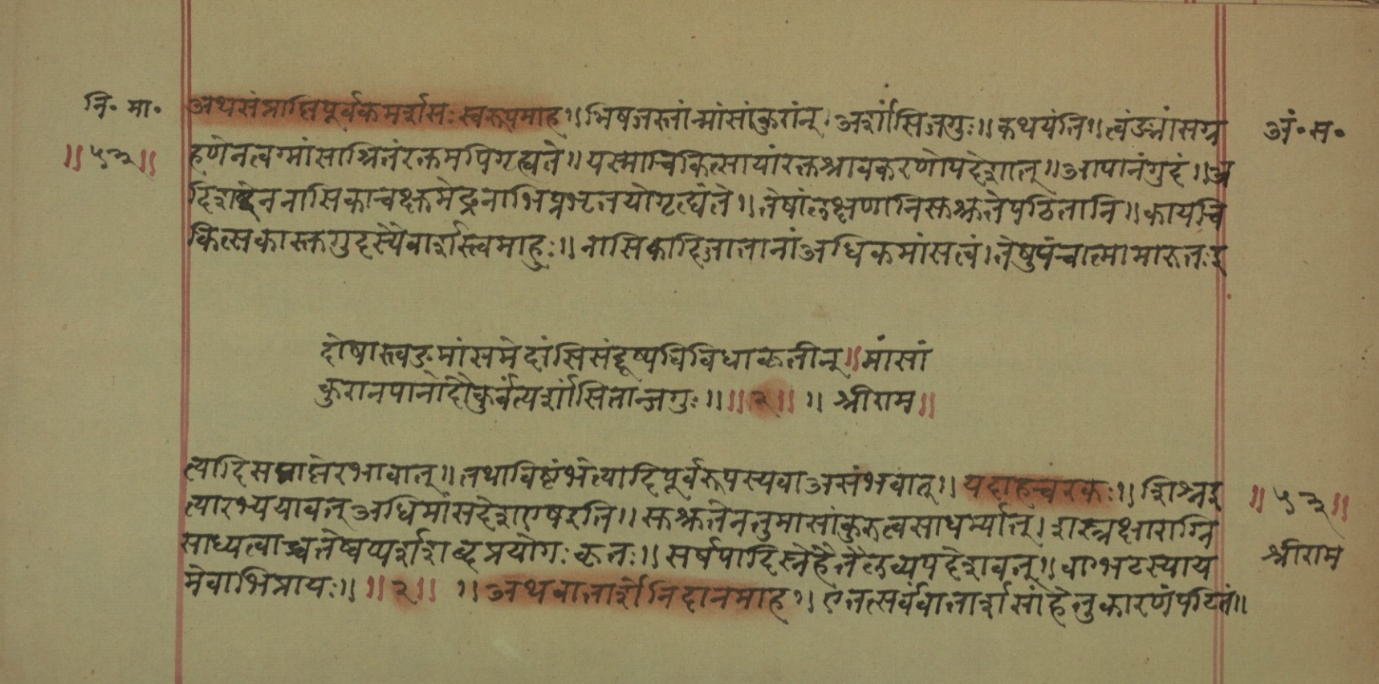 नि॰ मा॰
॥५३॥
अं॰ स॰
अथसंप्राप्तिपूर्वकमर्शसःस्वरूपमाह॥भिषजस्तांन्मांसांकुरांन्।अर्शांसिजगुः॥कथयंति॥त्वंङमांसग्र
हणेनत्वग्मांसाश्रितंरक्तमपिगृह्यते॥यस्माच्चिकित्सायांरक्तश्रावकरणोपदेशात्॥आपानंगुदं॥अ
दिशब्देननासिकाचक्षमेढ्रनाभिप्रभृतयोगृह्यंते॥तेषांलक्षणानिसुश्रुतेपठितानि॥कायचि
कित्सकास्तुगुदस्यैवार्शस्त्वमाहुः॥नासिकादिजातानांअधिकमांसत्वं।तेषुपंचात्मामारुतःइ
दोषास्त्वङमांसमेदांसिसंदूष्यविविधाकृतीन्॥मांसां
कुरानपानादौकुर्वंत्यर्शांसितान्जगुः॥॥२॥॥श्रीराम॥
त्यादिसंप्राप्तेरभावात्॥तथाविष्टंभेत्यादिपूर्वरूपस्यवाअसंभवात्॥यदाहचरकः॥शिश्नइ
त्यारभ्ययावत्अधिमांसदेशएषइति॥सुश्रुतेनतुमासांकुरत्वसाधर्म्यात्।शस्त्रक्षाराग्नि
साध्यत्वाच्चतेष्वप्यर्शशब्दप्रयोगःकृतः॥सर्षपादिस्नेहैतैलव्यपदेशवत्॥वाग्भटस्याय
मेवाभिप्रायः॥॥२॥॥अथवातार्शोनिदानमाह॥एतत्सर्ववातार्शसांहेतुकारणंपठितं॥
॥५३॥
श्रीराम